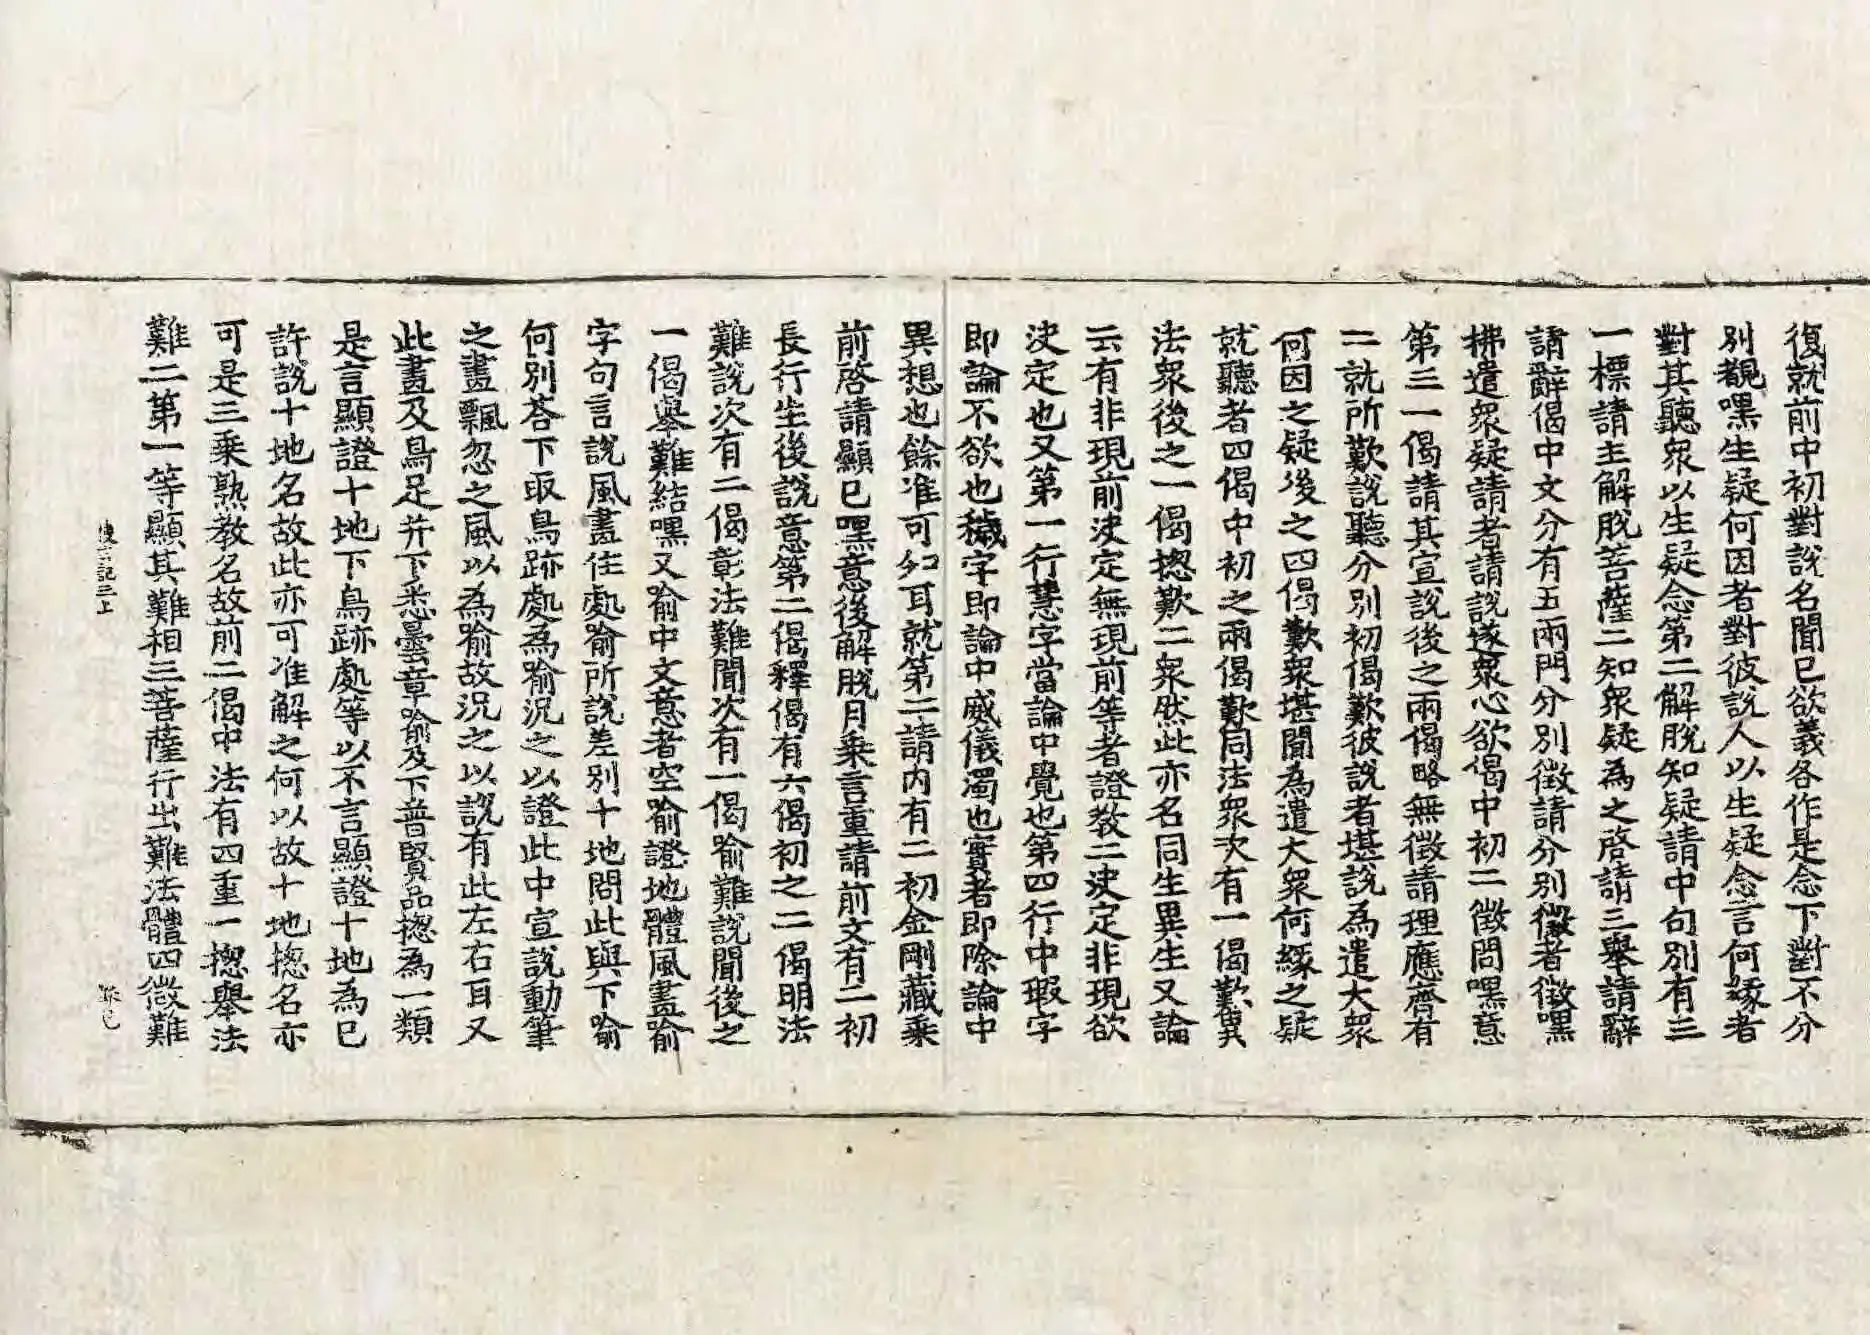 復就前中初對說名聞已欲義各作是念下對不分
別覩嘿生疑何因者對彼說人以生疑念言何緣者
對其聽衆以生疑念第二解脫知疑請中句別有三
一標請主解脫菩薩二知衆疑為之啓請三舉請辭
請辭偈中文分有五兩門分別徵請分別徵者徵嘿
拂遣衆疑請者請說遂衆心欲偈中初二徵問嘿意
第三一偈請其宣說後之兩偈略無徵請理應齊有
二就所歎說聽分別初偈歎彼說者堪說為遣大衆
何因之疑後之四偈歎衆堪聞為遣大衆何緣之疑
就聽者四偈中初之兩偈歎同法衆次有一偈歎異
法衆後之一偈揔歎二衆然此亦名同生異生又論
云有非現前決定無現前等者證教二決定非現欲
決定也又第一行慧字當論中覺也第四行中瑕字
即論不欲也穢字即論中威儀濁也實者即除論中
異想也餘准可知耳就第二請內有二初金剛藏乘
前啓請顯已嘿意後解脫月乘言重請前文有二初
長行生後說意第二偈釋偈有六偈初之二偈明法
難說次有二偈彰法難聞次有一偈喻難說聞後之
一偈舉難結嘿又喻中文意者空喻證地體風畫喻
字句言說風畫住處喻所說差別十地問此與下喻
何別荅下取鳥跡處為喻況之以證此中宣說動筆
之畫飄忽之風以為喻故況之以說有此左右耳又
此畫及鳥足并下悉曇章喻及下普賢品揔為一類
是言顯證十地下鳥跡處等以不言顯證十地為已
許說十地名故此亦可准解之何以故十地揔名亦
可是三乘熟教名故前二偈中法有四重一揔舉法
難二第一等顯其難相三菩薩行出難法體四徵難
搜玄記三上